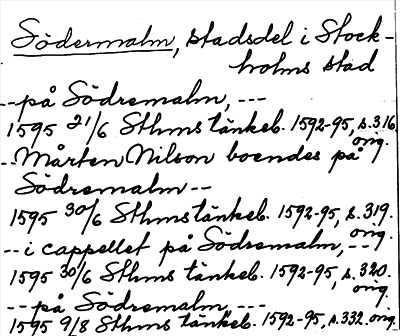 Södermalm, stadsdel i Stock-
holms stad
--på Södremalm, ---
1595 21/6 Sthms tänkeb. 1592-95, s.316.
orig.
--Mårten Nilson boendes på
Södremalm--
1595 30/6 Sthms tänkeb. 1592-95, s.319.
orig.
--i cappellet på Södremalm, --
1595 30/6 Sthms tänkeb. 1592-95, s.320.
orig.
--på Södremalm, ---
1595 9/8 Sthms tänkeb. 1592-95, s.332. orig.